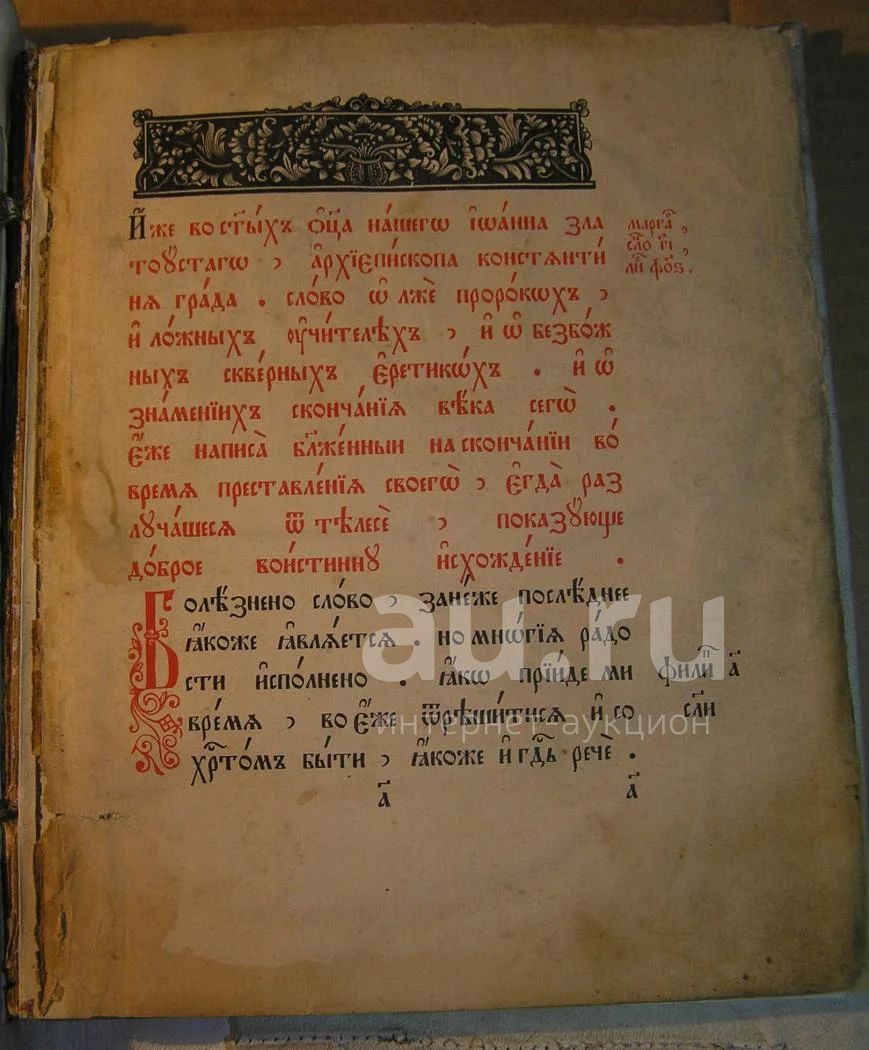 И҆́же во ст҃ы́хъ ѻ҆ц҃а на́шегѡ і҆ѡа́нна зла
тоꙋ́стагѡ , а҆рхїепи́скопа константи́
ня гра́да . сло́во ѡ҆ лжѐ проро́кѡхъ ,
и҆ ло́жныхъ ᲂу҆чи́телѣхъ , и҆ ѡ҆ безбо́ж
ныхъ скве́рныхъ є҆ретикѡ́хъ . и҆ ѡ҆
зна́менїихъ сконча́нїѧ вѣ́ка сегѡ̀ .
є҆́же написа̀ бл҃же́нныи на сконча́нїи во́
времѧ преставле́нїѧ своегѡ̀ , є҆гда̀ раз
лꙋча́шесѧ ѿ тѣлесѐ , показꙋ́юще
до́брое вои́стиннꙋ и҆схожде́нїе .
марга҃ ,
сло г҃і
ли ф҃ѻз .
Болѣ́знено сло́во , зане́же послѣ́днее
ꙗ҆́коже ꙗ҆влѧ́етсѧ . но мнѡ́гїѧ ра́до
сти и҆спо́лнено . ꙗ҆́кѡ прїи́де ми
вре́мѧ , во є҆́же ѿрѣши́тисѧ и҆ со
хрⷭ҇то́мъ бы́ти , ꙗ҆́коже и҆ гдⷭ҇ь речѐ .
филиⷫ҇ а҃
сли
а҃
а҃
au.ru
интернет-аукцион